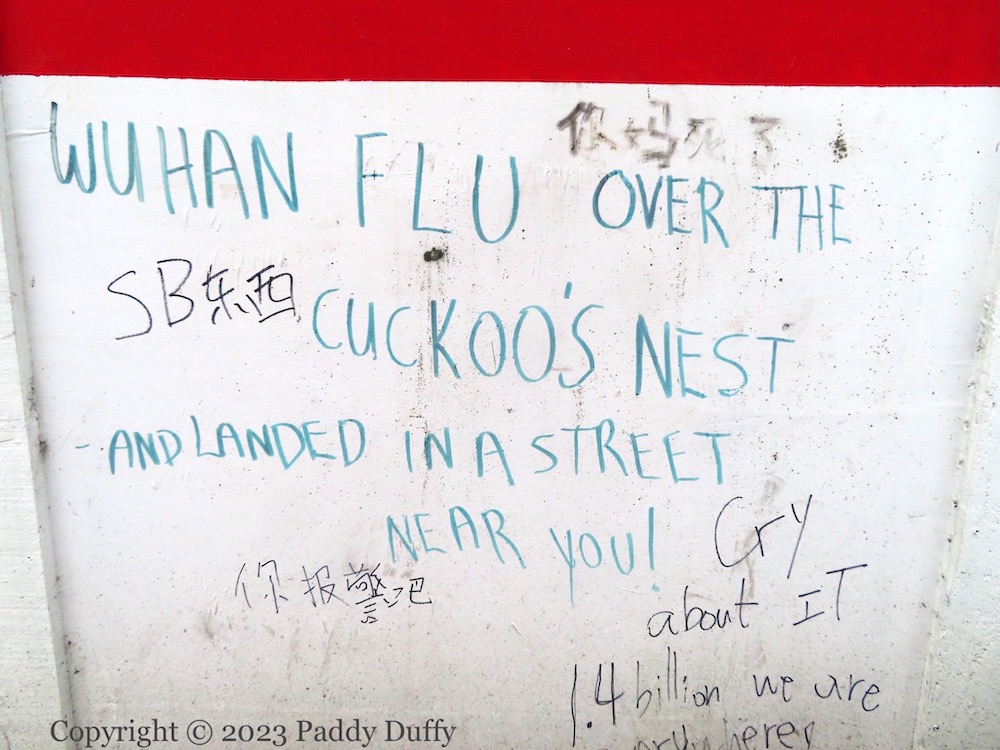 你妈死了
WUHAN FLU OVER THE
SB东西
CUCKOO'S NEST
- AND LANDED IN A STREET
NEAR YOU!
Cry
about IT
你报警吧
1.4 billion we are
Copyright © 2023 Paddy Duffy